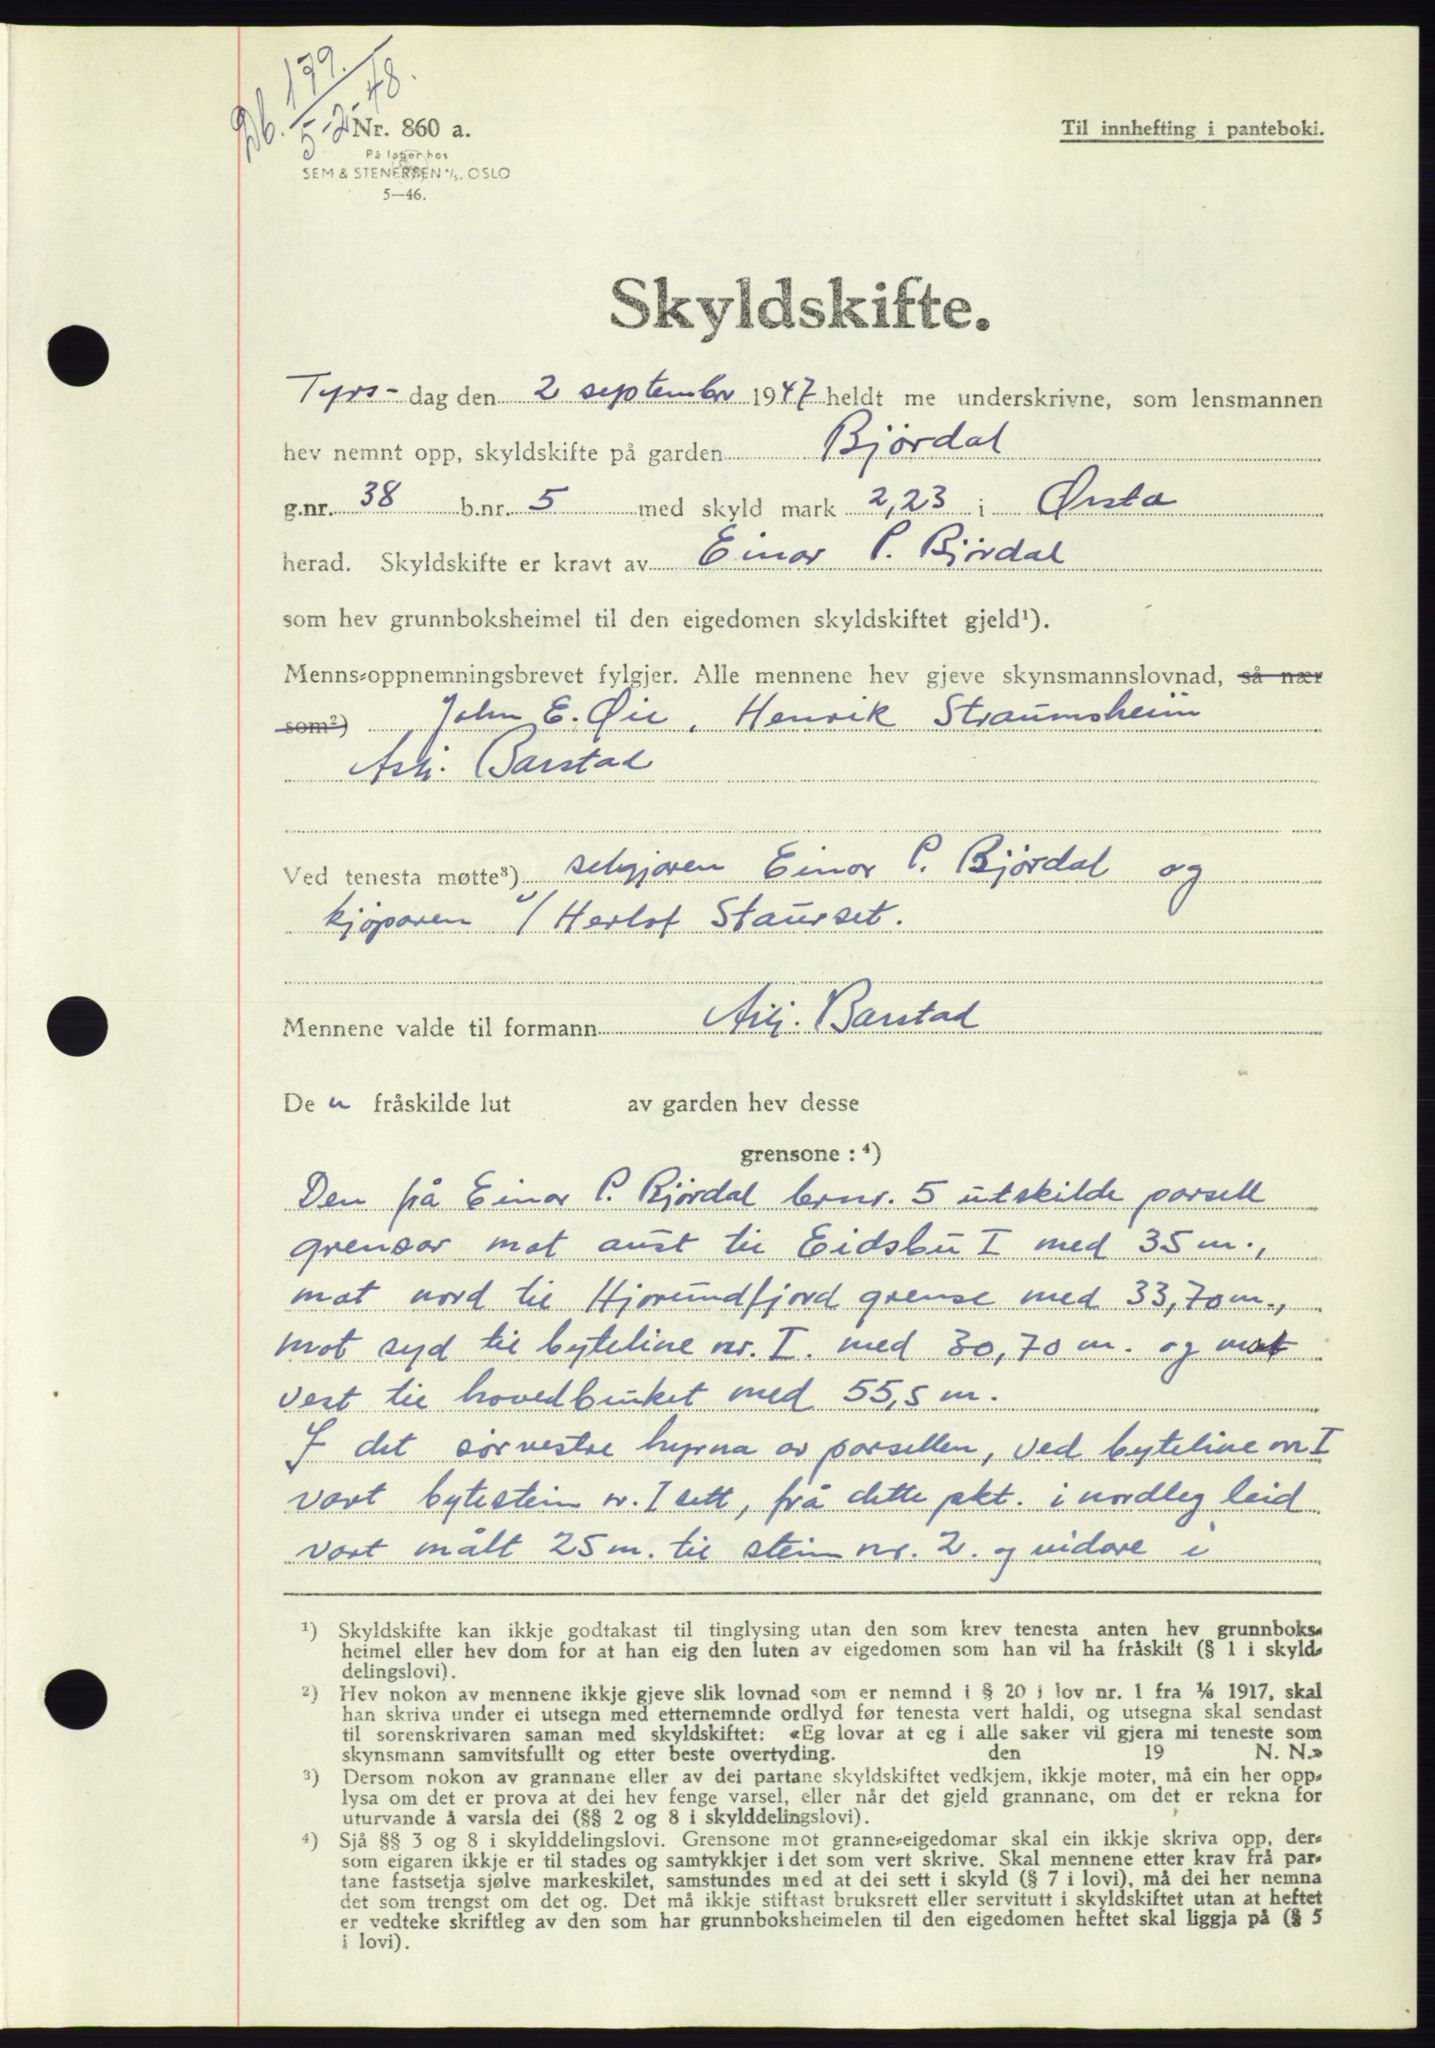 Db. 179.
5-2-48.
Nr. 860 a.
Til innhefting i panteboki.
På lager hos
SEM & STENERSEN A/S. OSLO
5—46.
Skyldskifte.
Tyrs- dag den 2 september 1947 heldt me underskrivne, som lensmannen
hev nemnt opp, skyldskifte på garden Björdal
g.nr. 38 b.nr. 5 med skyld mark 2,23 i Ørsta
herad. Skyldskifte er kravt av Einar P. Björdal
som hev grunnboksheimel til den eigedomen skyldskiftet gjeld¹).
Menns-oppnemningsbrevet fylgjer. Alle mennene hev gjeve skynsmannslovnad, så nær
som²) John E. Øie, Henrik Straumsheim
Asbj. Barstad
Ved tenesta møtte³) seljaren Einar P. Björdal og
kjöparen v/ Herlof Staurset.
Mennene valde til formann Asbj. Barstad
De n fråskilde lut av garden hev desse
grensone : ⁴)
Den på Einar P. Björdal brnr. 5 utskilde parsell
grensar mot aust til Eidsbu I med 35 m.,
mot nord til Hjorundfjord grense med 33,70 m.,
mot syd til byteline nr. I. med 30,70 m. og mot
vest til hovedbruket med 55,5 m.
I det sörvestre hyrna av parsellen, ved byteline nr I
vart bytestein nr. I sett, frå dette pkt. i nordleg leid
vart målt 25 m. til stein nr. 2. og vidare i
¹) Skyldskifte kan ikkje godtakast til tinglysing utan den som krev tenesta anten hev grunnboks-
heimel eller hev dom for at han eig den luten av eigedomen som han vil ha fråskilt (§ 1 i skyld-
delingslovi).
²) Hev nokon av mennene ikkje gjeve slik lovnad som er nemnd i § 20 i lov nr. 1 fra 1/6 1917, skal
han skriva under ei utsegn med etternemnde ordlyd før tenesta vert haldi, og utsegna skal sendast
til sorenskrivaren saman med skyldskiftet: «Eg lovar at eg i alle saker vil gjera mi teneste som
skynsmann samvitsfullt og etter beste overtyding. den 19 N. N.»
³) Dersom nokon av grannane eller av dei partane skyldskiftet vedkjem, ikkje møter, må ein her opp-
lysa om det er prova at dei hev fenge varsel, eller når det gjeld grannane, om det er rekna for
uturvande å varsla dei (§§ 2 og 8 i skylddelingslovi).
⁴) Sjå §§ 3 og 8 i skylddelingslovi. Grensone mot granne-eigedomar skal ein ikkje skriva opp, der-
som eigaren ikkje er til stades og samtykkjer i det som vert skrive. Skal mennene etter krav frå par-
tane fastsetja sjølve markeskilet, samstundes med at dei sett i skyld (§ 7 i lovi), må dei her nemna
det som trengst om det og. Det må ikkje stiftast bruksrett eller servitutt i skyldskiftet utan at heftet
er vedteke skriftleg av den som har grunnboksheimelen til den eigedomen heftet skal liggja på (§ 5
i lovi).